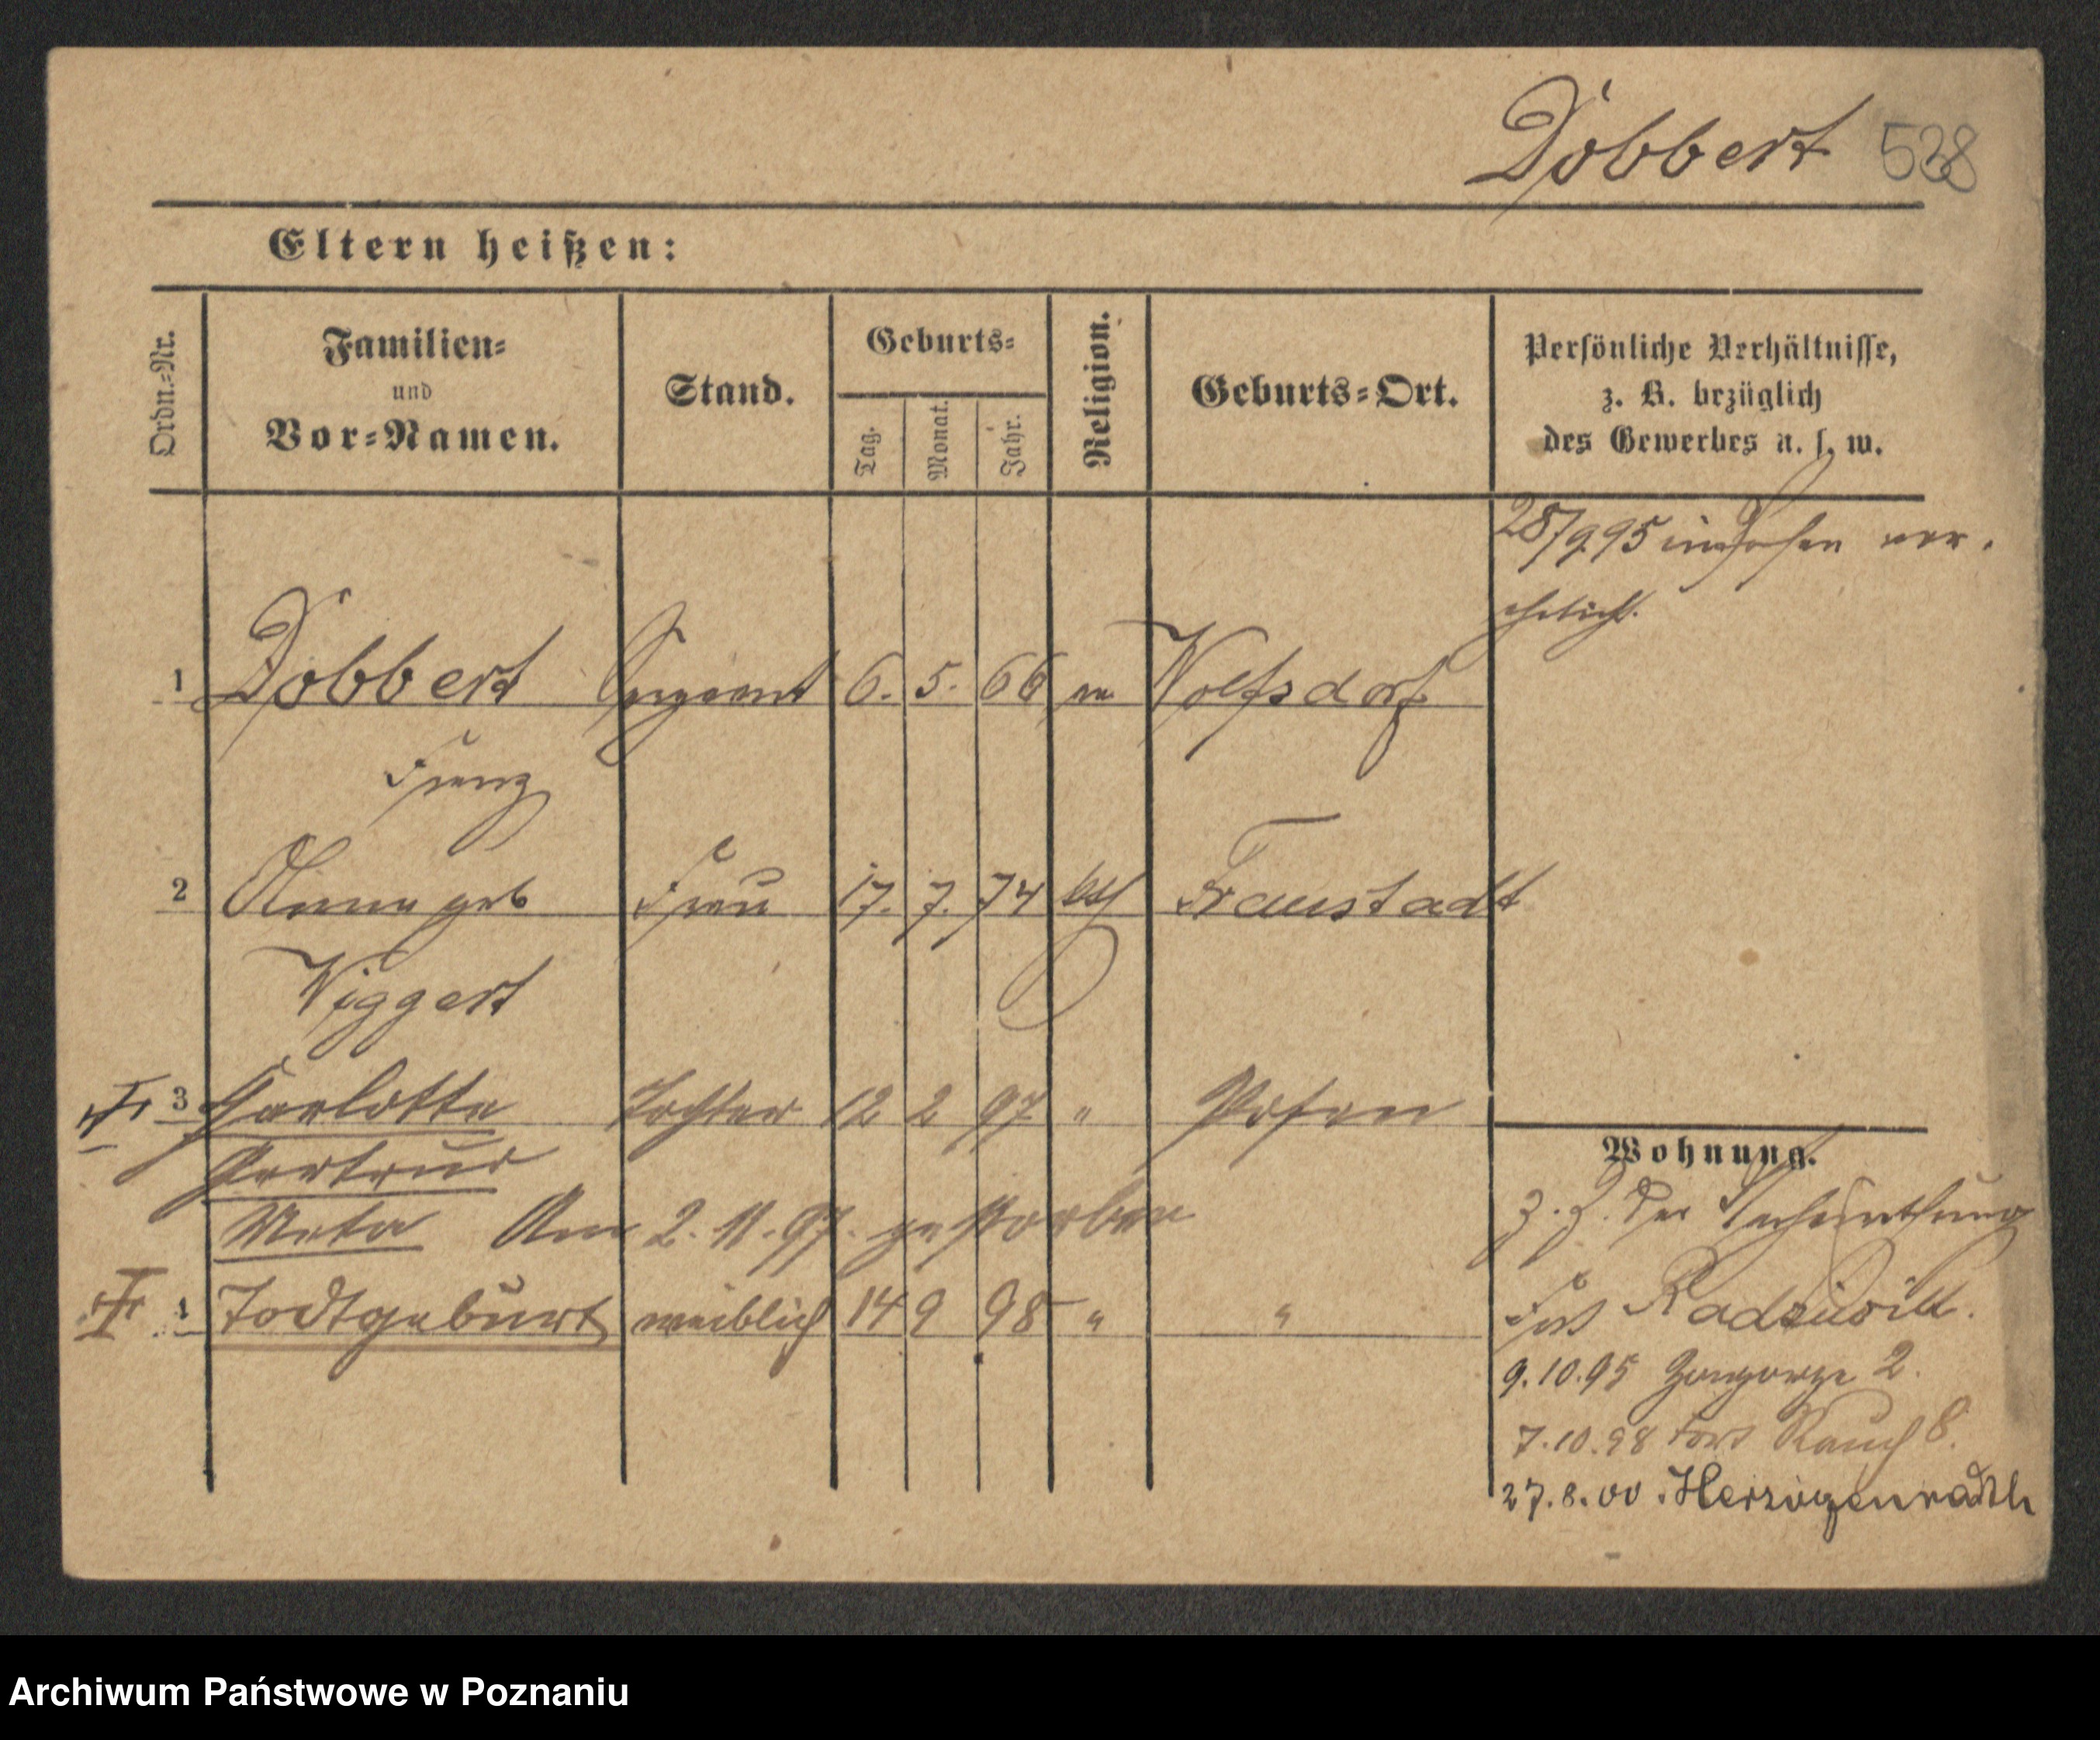 Dobbert 528
Eltern heißen:
Ordn.-Nr.
Familien-
und
Vor-Namen.
Stand.
Geburts-
Tag.
Monat.
Jahr.
Religion.
Geburts-Ort.
Persönliche Verhältnisse,
z. B. bezüglich
des Gewerbes u. s. w.
28/9 95 in Posen ver.
ehelicht.
1 Dobbert Sergeant 6. 5. 66 ev Wolfsdorf
Franz
2 Anna geb Frau 17. 7. 74 kath Fraustadt
Wiggert
3 Charlotte Tochter 12 2 97 " Posen
Gertrud
Meta Am 2. 11. 97. gestorben
4 Todtgeburt weiblich 14 9 98 " "
Wohnung.
z. Z. der
Fort Radziwill.
9.10.95 Zagorze 2.
7.10.98 Fort Rauch 8.
27.8.00. Herzogenrath
Archiwum Państwowe w Poznaniu